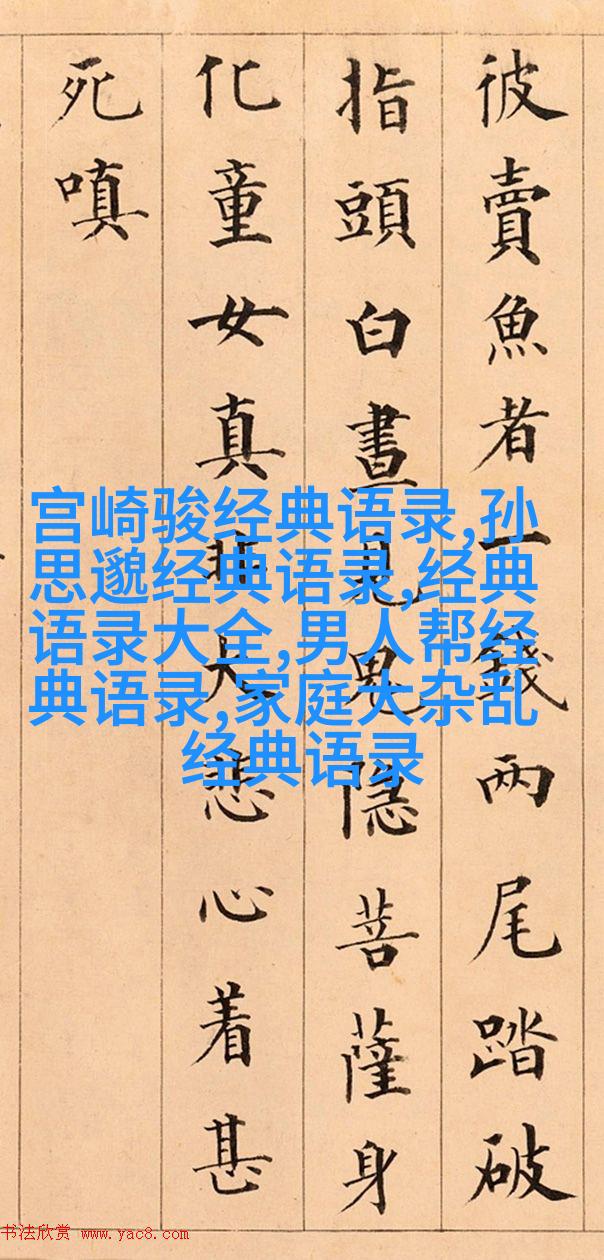 彼賣魚者一錢两尾踏破
指頭白晝見鬼隱菩薩身
化童女真非大悲心着甚
死嗔
宫崎骏经典语录,孙
思邈经典语录,经典
语录大全,男人帮经
典语录,家庭大杂乱
经典语录
书法欣赏 www.yac8.com